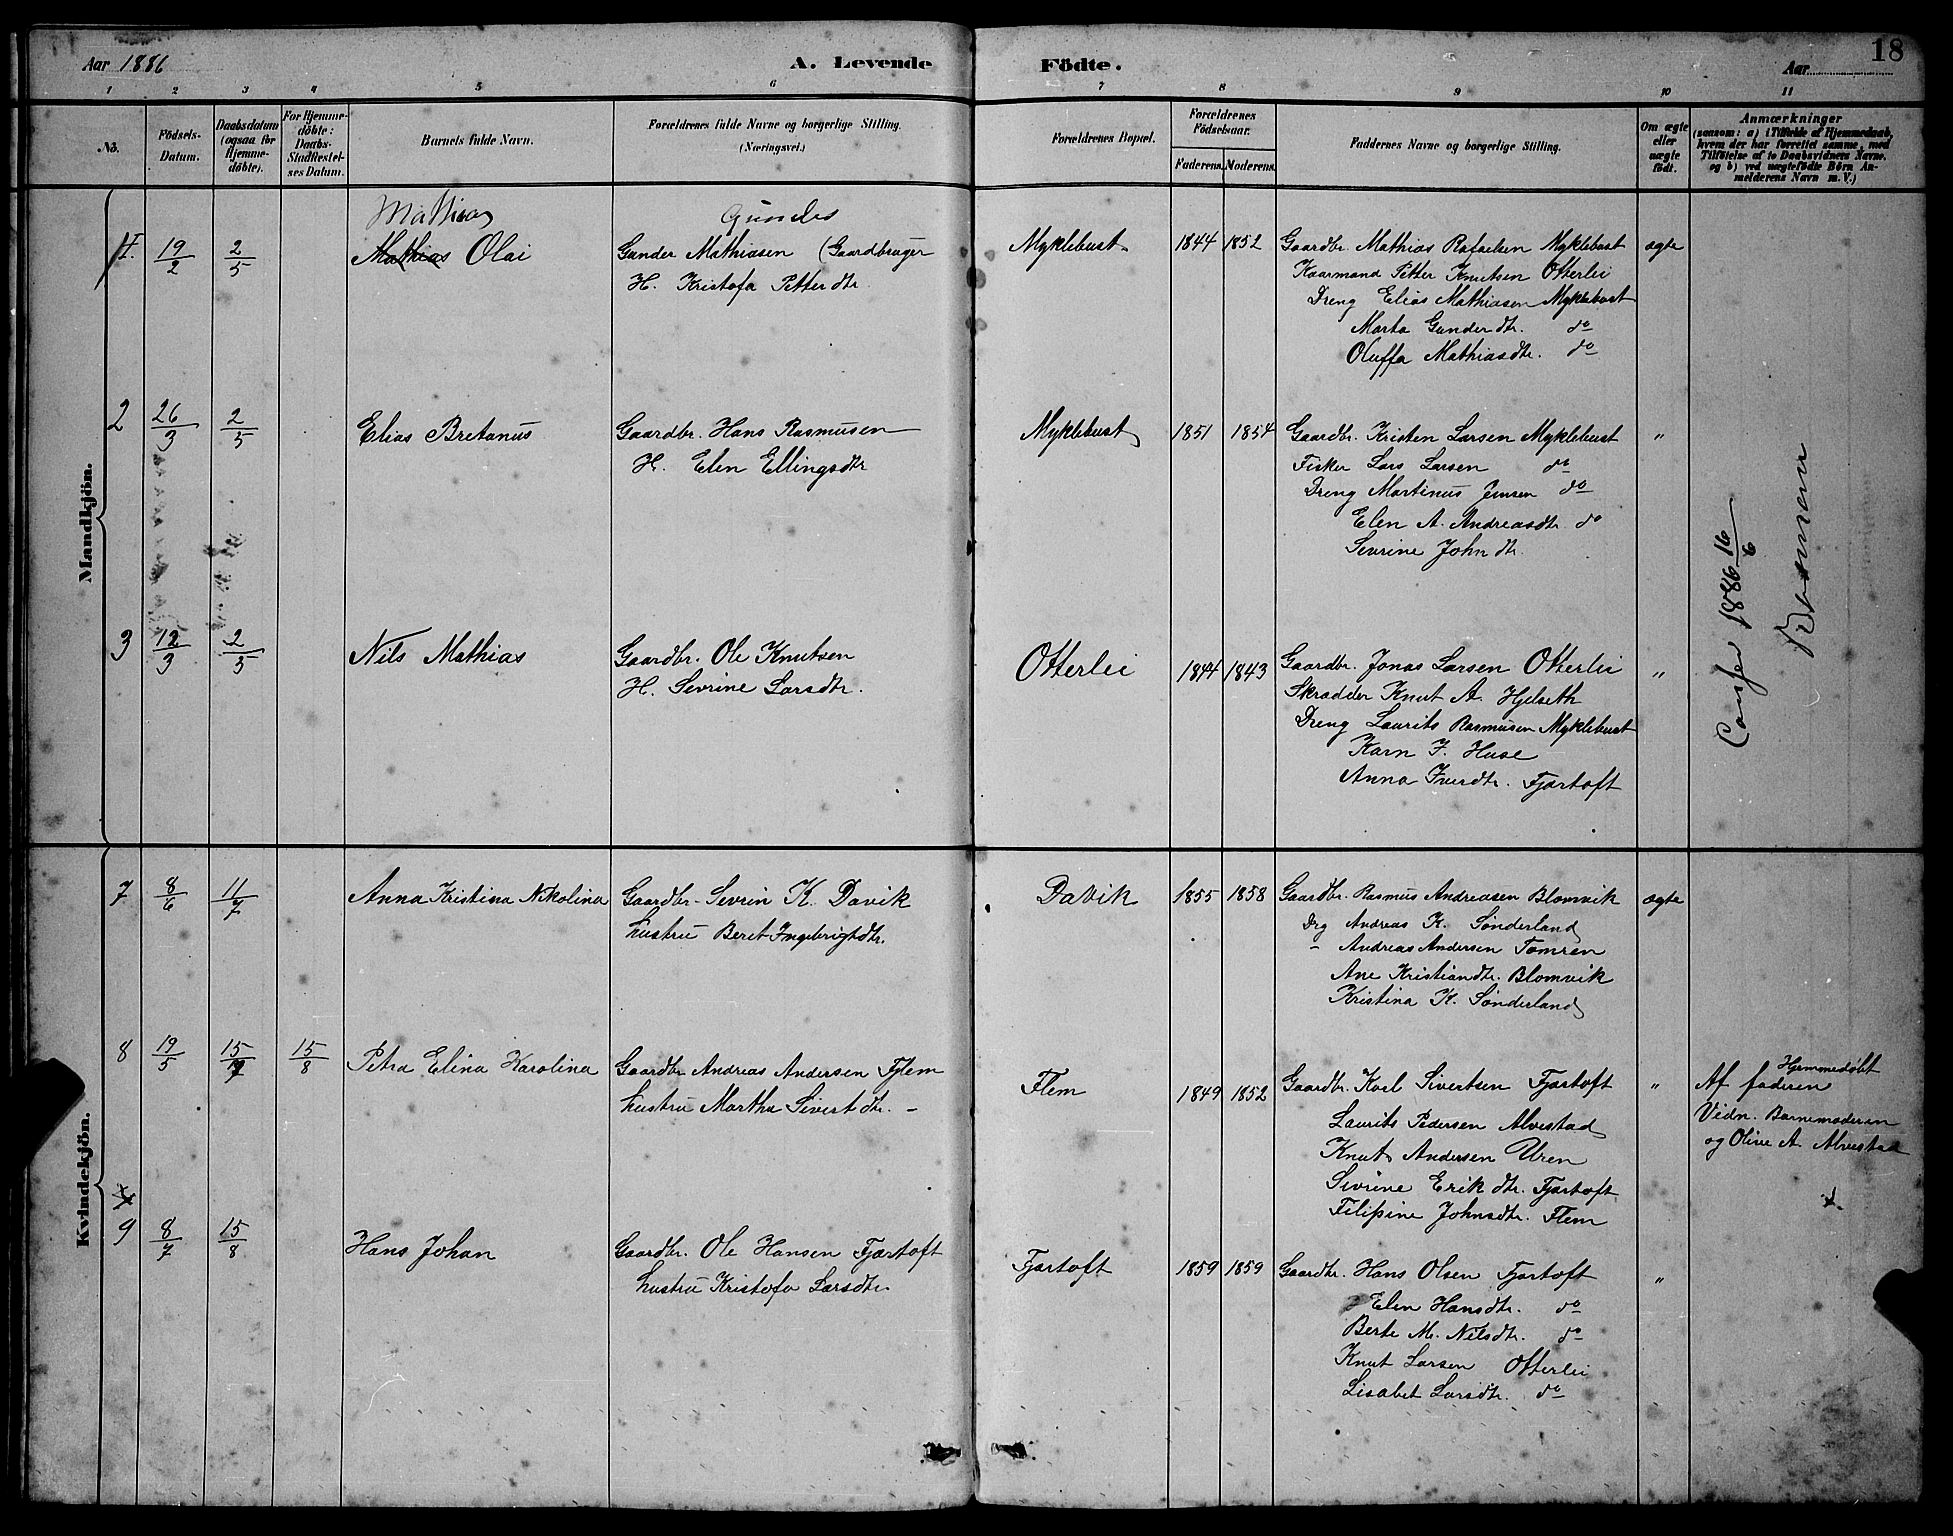 Aar 1886
A. Levende
Födte.
Aar
18
1 2 3 4 5 6 7 8 9 10 11
No.
Födsels-
Datum.
Daabsdatum
(ogsaa for
Hjemme-
döbte).
For Hjemme-
döbte:
Daabs-
Stadfæstel-
ses Datum.
Barnets fulde Navn.
Forældrenes fulde Navne og borgerlige Stilling.
(Næringsvei.)
Forældrenes Bopæl.
Forældrenes
Födselsaar.
Faderens. Moderens.
Faddernes Navne og borgerlige Stilling.
Om ægte
eller
uægte
födt.
Anmærkninger
(saasom: a) i Tilfælde af Hjemmedaab,
hvem der har forrettet samme, med
Tilföielse af to Daabsvidners Navne,
og b) ved uægtefödte Börn An-
melderens Navn m. V.)
Mandkjön.
Mathias
Gunder
1. 19/2 2/5 Mathias Olai
Gunder Mathiasen (Gaardbruger
H. Kristofa Petterdtr.
Myklebust 1844 1852
Gaardbr. Mathias Rafaelsen Myklebust ægte
Kaarmand Petter Knutsen Otterlei
Dreng Elias Mathiasen Myklebust
Marta Gunderdtr. do
Oluffa Mathiasdtr. do
2 26/3 2/5 Elias Bretanus
Gaardbr. Hans Rasmusen
H. Elen Ellingsdtr
Myklebust 1851 1854
Gaardbr. Kristen Larsen Myklebust "
Fisker Lars Larsen do
Dreng Martinus Jensen do
Elen A. Andreasdtr do
Sevrine Johndtr.
3 12/3 2/5 Nils Mathias
Gaardbr. Ole Knutsen
H. Sevrine Larsdtr.
Otterlei 1844 1843
Gaardbr. Jonas Larsen Otterlei "
Skrædder Knut A. Hjelseth
Dreng Laurits Rasmusen Myklebust
Karn J. Huse
Anna Iverdtr. Fjørtoft
Confer 1886 16/6
Kvindekjön.
7 8/6 11/7 Anna Kristina Nikolina
Gaardbr. Sevrin K. Davik
hustru Beret Ingebrigtdtr.
Davik 1855 1858
Gaardbr. Rasmus Andreasen Blomvik ægte
Drg Andreas K. Sønderland
- Andreas Andersen Tomren
Ane Kristiandtr. Blomvik
Kristina K. Sønderland
8 19/5 15/7 15/8 Petra Elina Karolina
Gaardbr Andreas Andersen Flem
hustru Martha Sivertdtr. -
Flem 1849 1852
Gaardbr. Karl Sivertsen Fjørtoft "
Laurits Pedersen Alvestad
Knut Andersen Uren
Sivrine Erikdtr. Fjørtoft
Filipine Johnsdtr. Flem
Hjemmedøbt
Af faderen
Vidn. Barnemoderen
og Olive A. Alvestad
9 8/7 15/8 Hans Johan
Gaardbr. Ole Hansen Fjørtoft
hustru Kristofa Larsdtr.
Fjørtoft 1859 1859
Gaardbr. Hans Olsen Fjørtoft "
Elen Hansdtr. do
Berte M. Nilsdtr. do
Knut Larsen Otterlei
Lisabet Larsdtr. do